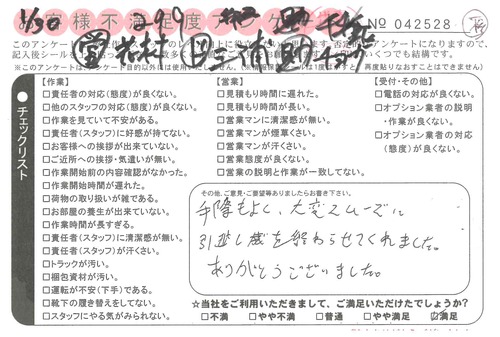 1/30
様不満足度
No 042528
このアンケート
記入後シール
も結構です。
※このアンケートは、
【作業】
□責任者の対応(態度)が良くない。
□他のスタッフの対応(態度)が良くない。
□作業を見ていて不安がある。
□責任者(スタッフ)に好感が持てない。
□お客様への挨拶が出来ていない。
□ご近所への挨拶・気遣いが無い。
□作業開始前の内容確認がなかった。
□作業開始時間が遅れた。
□荷物の取り扱いが雑である。
□お部屋の養生が出来ていない。
□作業時間が長すぎる。
□責任者(スタッフ)に清潔感が無い。
□責任者(スタッフ)が汗くさい。
□トラックが汚い。
□梱包資材が汚い。
□運転が不安(下手)である。
□靴下の履き替えをしてない。
□スタッフにやる気がみられない。
【営業】
□見積もり時間に遅れた。
□見積もり時間が長い。
□営業マンに清潔感が無い。
□営業マンが煙草くさい。
□営業マンが汗くさい。
□営業態度が良くない。
□営業の説明と作業が一致してない。
【受付・その他】
□電話の対応が良くない。
□オプション業者の説明
・作業が良くない。
□オプション業者の対応
(態度)が良くない。
チェックリスト
その他、ご意見・ご要望等ありましたらお書き下さい。
手際もよく、大変スムーズに
引越し蔵を終わらせてくれました。
ありがとうございました。
☆当社をご利用いただきまして、ご満足いただけたでしょうか?
□不満 □やや不満 □普通 □やや満足 □満足